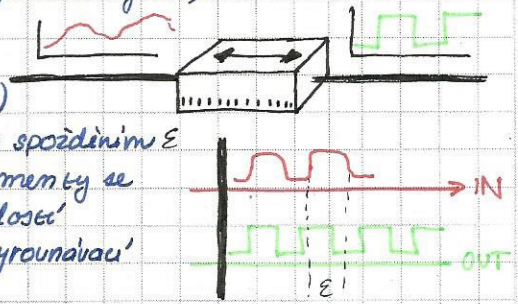 )
spožděním ε
menty se
losti
yrounávací
IN
OUT
ε